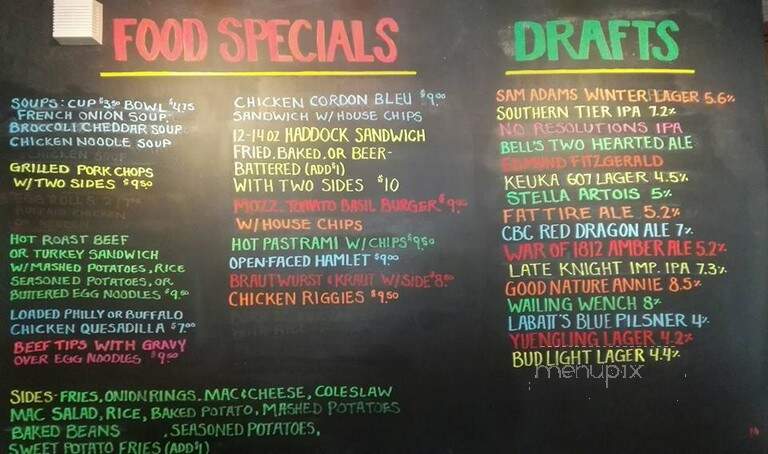 FOOD SPECIALS
SOUPS: CUP $3.50 BOWL $4.75
FRENCH ONION SOUP
BROCCOLI CHEDDAR SOUP
CHICKEN NOODLE SOUP
GRILLED PORK CHOPS
W/TWO SIDES $9.50
HOT ROAST BEEF
OR TURKEY SANDWICH
W/MASHED POTATOES, RICE
SEASONED POTATOES, OR
BUTTERED EGG NOODLES $9.50
LOADED PHILLY OR BUFFALO
CHICKEN QUESADILLA $7.00
BEEF TIPS WITH GRAVY
OVER EGG NOODLES $9.50
CHICKEN CORDON BLEU $9.00
SANDWICH W/HOUSE CHIPS
12-14 OZ HADDOCK SANDWICH
FRIED, BAKED, OR BEER-
BATTERED (ADD $1)
WITH TWO SIDES $10
MOZZ. TOMATO BASIL BURGER $9.00
W/HOUSE CHIPS
HOT PASTRAMI W/CHIPS $9.50
OPEN-FACED HAMLET $9.00
BRAUTWURST & KRAUT W/SIDE $8.00
CHICKEN RIGGIES $9.50
SIDES- FRIES, ONION RINGS, MAC & CHEESE, COLESLAW
MAC SALAD, RICE, BAKED POTATO, MASHED POTATOES
BAKED BEANS , SEASONED POTATOES,
SWEET POTATO FRIES (ADD $1)
DRAFTS
SAM ADAMS WINTER LAGER 5.6%
SOUTHERN TIER IPA 7.2%
NO RESOLUTIONS IPA
BELL'S TWO HEARTED ALE
EDMUND FITZGERALD
KEUKA 607 LAGER 4.5%
STELLA ARTOIS 5%
FAT TIRE ALE 5.2%
CBC RED DRAGON ALE 7%
WAR OF 1812 AMBER ALE 5.2%
LATE KNIGHT IMP. IPA 7.3%
GOOD NATURE ANNIE 8.5%
WAILING WENCH 8%
LABATT'S BLUE PILSNER 4%
YUENGLING LAGER 4.2%
BUD LIGHT LAGER 4.4%
menupix